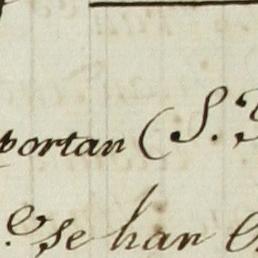 portan (S.
se han